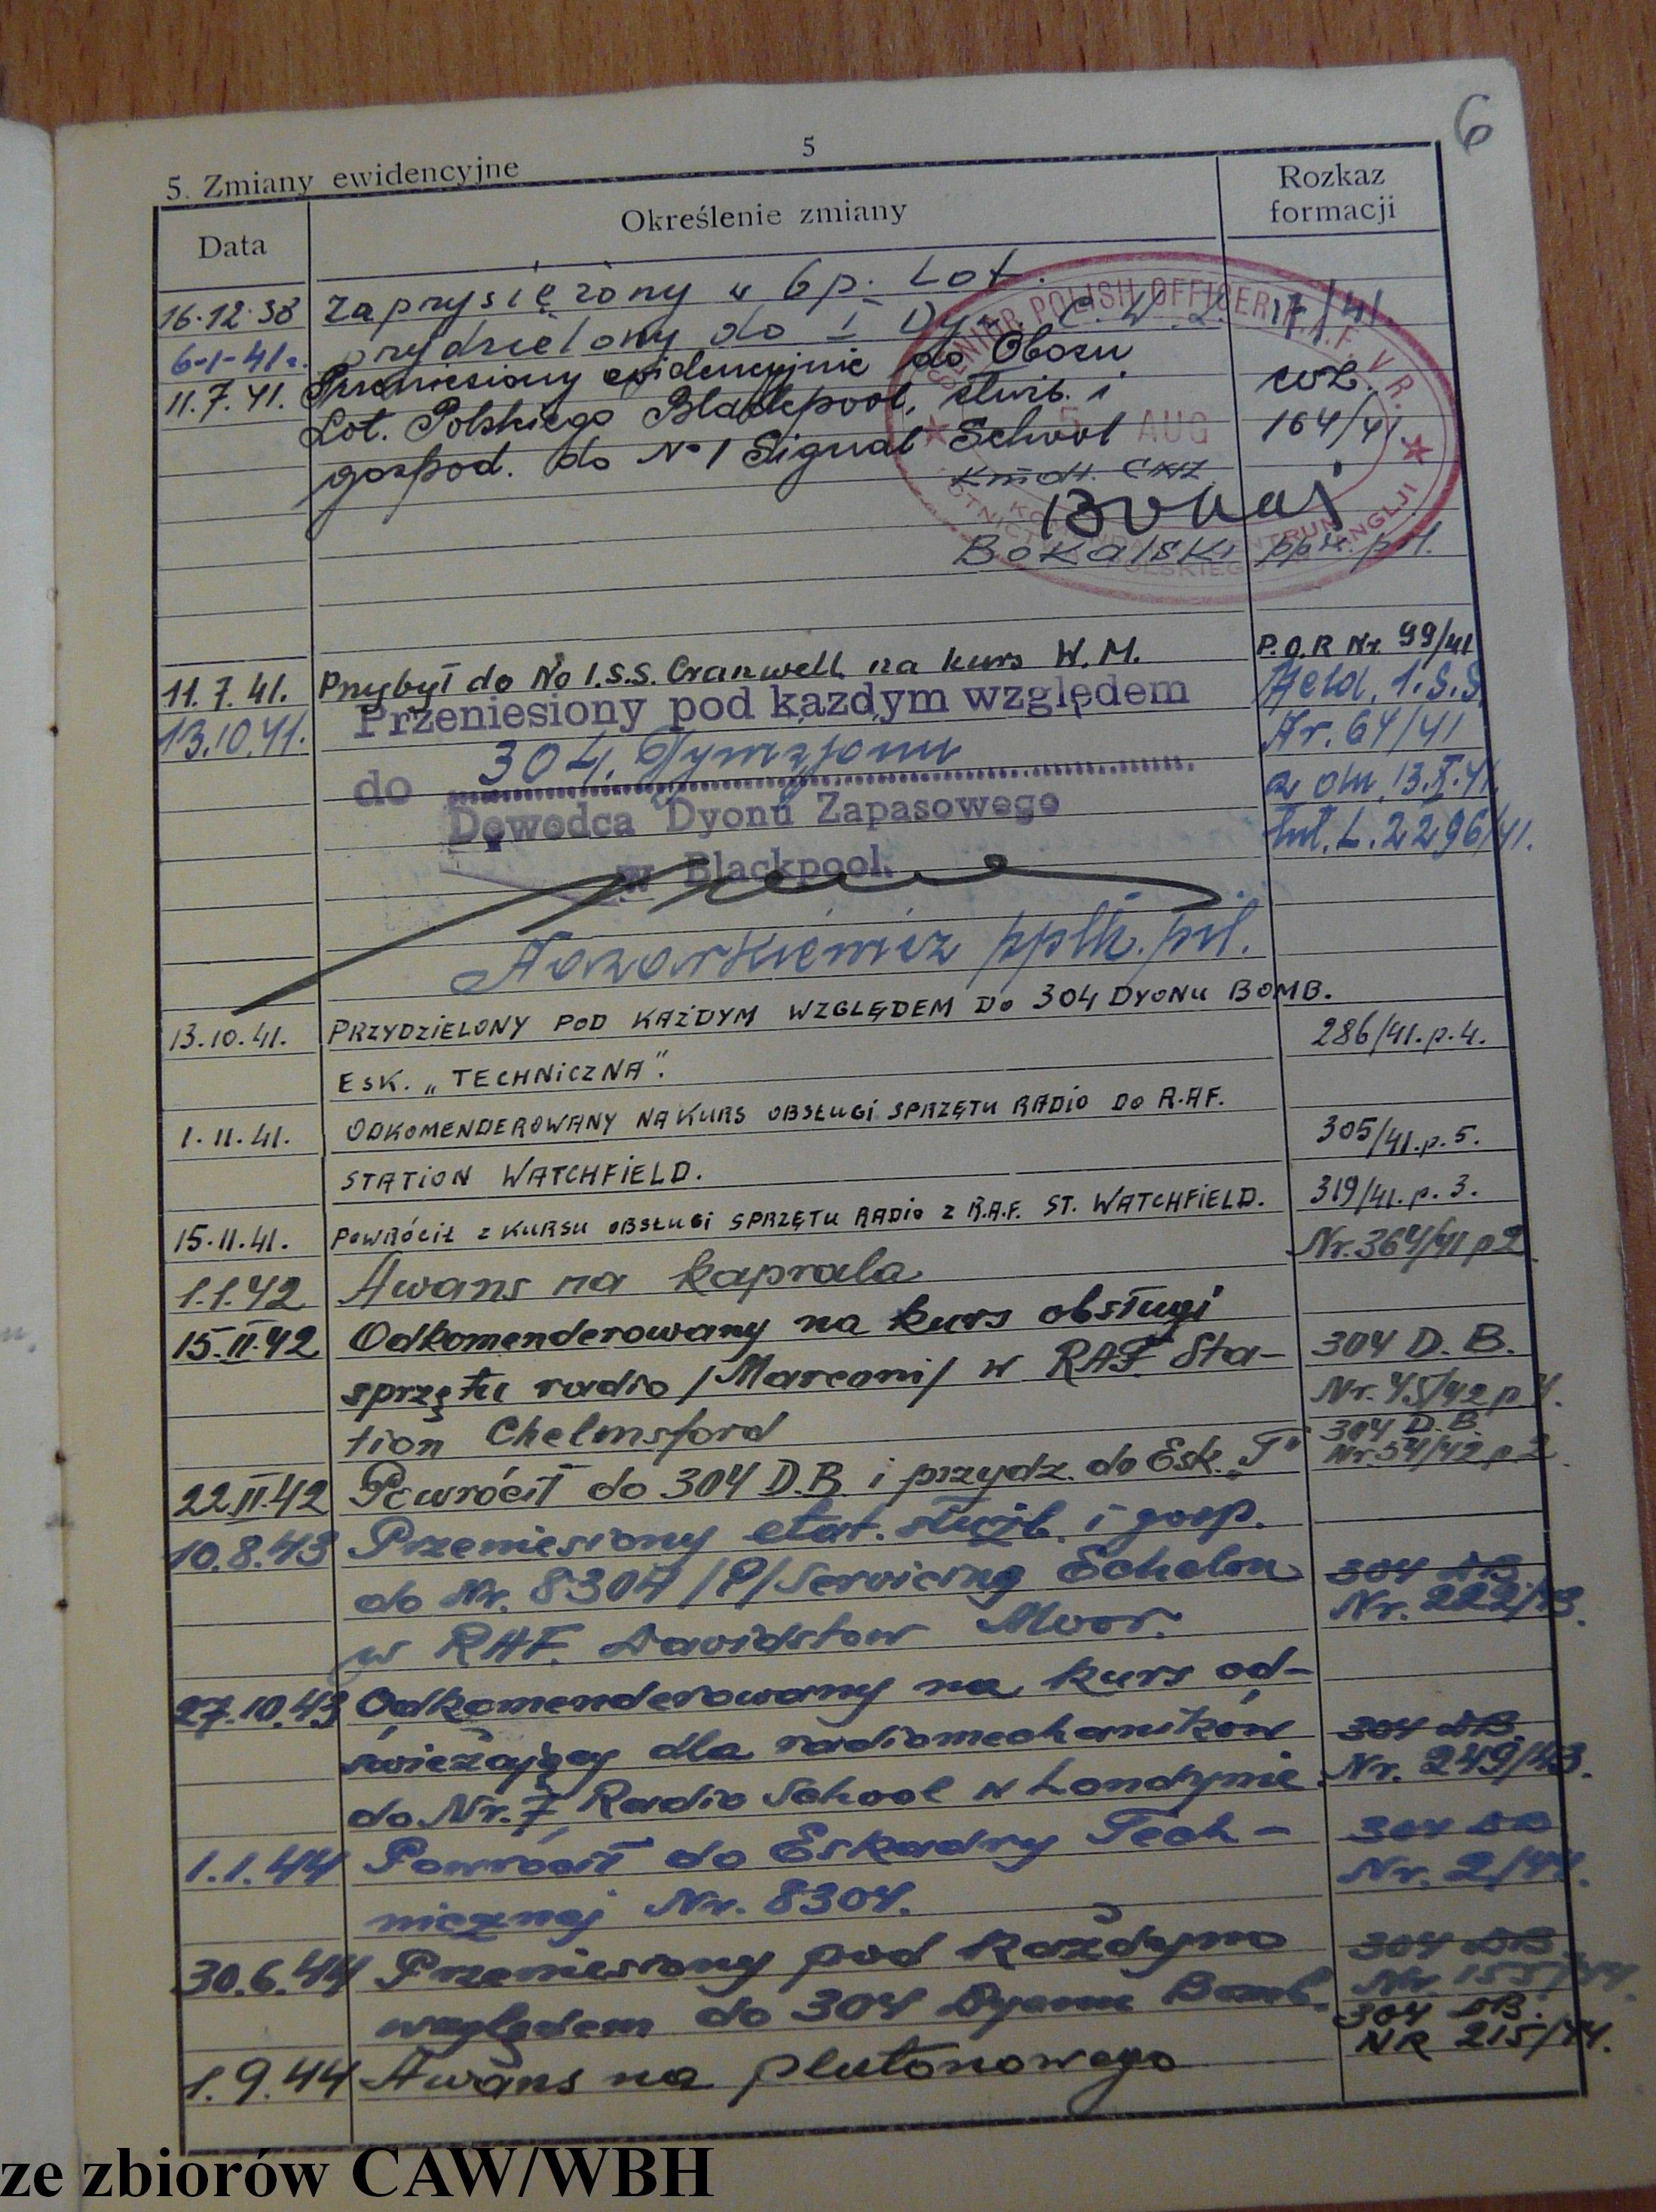 6
5
5. Zmiany ewidencyjne
Data
Określenie zmiany
Rozkaz
formacji
16.12.38 zaprzysiężony w 6 p. Lot.
6-1-41r. przydzielony do I Dyw. C.W.L. 17/41.
11.7.41. Przeniesiony ewidencyjnie do Obozu
Lot. Polskiego Blackpool, służb. i CWL.
gospod. do No 1 Signal School 164/41.
SENIOR POLISH OFFICER R.A.F. V.R.
5 AUG
Kmdt. CWL
Bokalski ppłk. pil.
11.7.41. Przybył do No 1.S.S. Cranwell na kurs W.M. P.O.R Nr 99/41
13.10.41. Przeniesiony pod każdym względem
do 304. Dywizjonu
Dowódca Dyonu Zapasowego
w Blackpool.
1.S.S
Nr. 64/41
z dn. 13.X.41.
L. 2296/41.
Nazarkiewicz ppłk. pil.
13.10.41. PRZYDZIELONY POD KAŻDYM WZGLĘDEM DO 304 DYONU BOMB. 286/41.p.4.
ESK. „TECHNICZNA".
1.11.41. ODKOMENDEROWANY NA KURS OBSŁUGI SPRZĘTU RADIO DO R.A.F. 305/41.p.5.
STATION WATCHFIELD.
15.11.41. POWRÓCIŁ Z KURSU OBSŁUGI SPRZĘTU RADIO Z R.A.F. ST. WATCHFIELD. 319/41.p.3.
1.1.42 Awans na kaprala Nr. 364/41 p 2
15.II.42 Odkomenderowany na kurs obsługi
sprzętu radio /Marconi/ w RAF. Sta- 304 D.B.
tion Chelmsford Nr. 45/42 p 4.
22.II.42 Powrócił do 304 D.B. i przydz. do Esk. „T" 304 D.B. Nr. 54/42 p 2.
10.8.43 Przeniesiony etat. służb. i gosp.
do Nr. 8304 /P/ Servicing Echelon 304 DB.
w RAF. Davidstow Moor. Nr. 222/43.
27.10.43 Odkomenderowany na kurs od-
świeżający dla radiomechaników 304 DB.
do Nr. 7 Radio School w Londynie. Nr. 249/43.
1.1.44 Powrócił do Eskadry Tech- 304 DB
nicznej Nr. 8304. Nr. 2/44.
30.6.44 Przeniesiony pod każdym 304 DB.
względem do 304 Dyonu Bomb. Nr. 155/44.
1.9.44 Awans na plutonowego 304 DB. NR 215/44.
ze zbiorów CAW/WBH